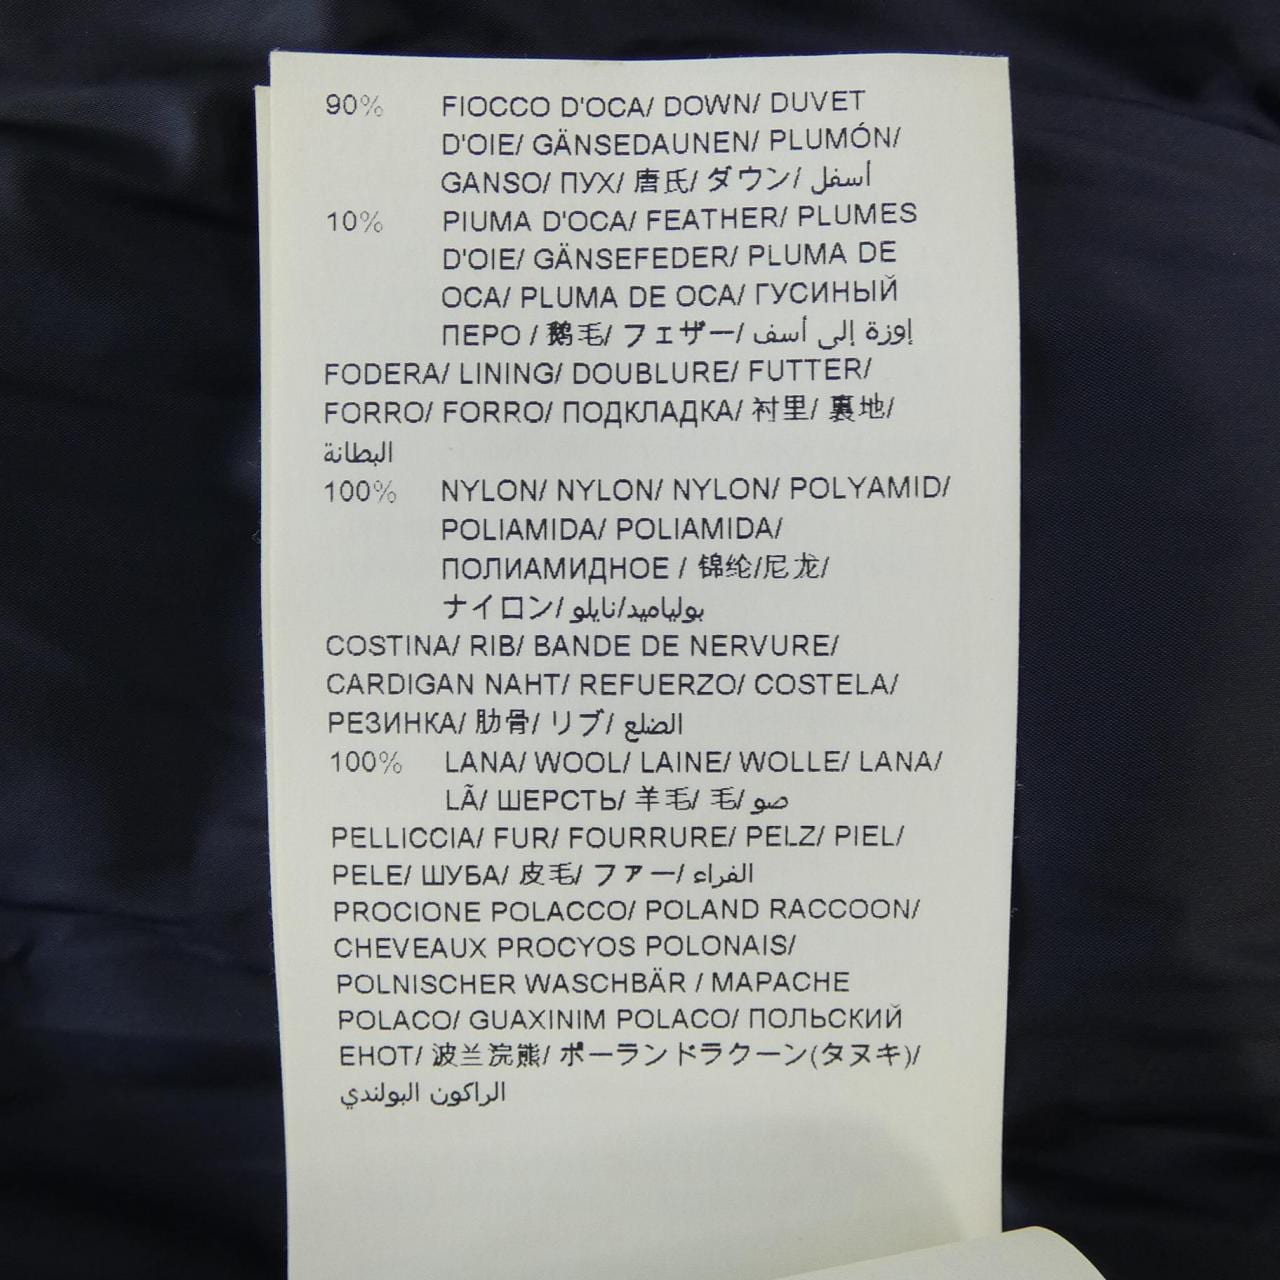 90% FIOCCO D'OCA/ DOWN/ DUVET
D'OIE/ GÄNSEDAUNEN/ PLUMÓN/
GANSO/ ПУХ/ 唐氏/ ダウン/ أسفل
10% PIUMA D'OCA/ FEATHER/ PLUMES
D'OIE/ GÄNSEFEDER/ PLUMA DE
OCA/ PLUMA DE OCA/ ГУСИНЫЙ
ПЕРО / 鹅毛/ フェザー/ إوزة إلى أسف
FODERA/ LINING/ DOUBLURE/ FUTTER/
FORRO/ FORRO/ ПОДКЛАДКА/ 衬里/ 裏地/
البطانة
100% NYLON/ NYLON/ NYLON/ POLYAMID/
POLIAMIDA/ POLIAMIDA/
ПОЛИАМИДНОЕ / 锦纶/尼龙/
ナイロン/ بولياميد/نايلو
COSTINA/ RIB/ BANDE DE NERVURE/
CARDIGAN NAHT/ REFUERZO/ COSTELA/
РЕЗИНКА/ 肋骨/ リブ/ الضلع
100% LANA/ WOOL/ LAINE/ WOLLE/ LANA/
LÃ/ ШЕРСТЬ/ 羊毛/ 毛/ صو
PELLICCIA/ FUR/ FOURRURE/ PELZ/ PIEL/
PELE/ ШУБА/ 皮毛/ ファー/ الفراء
PROCIONE POLACCO/ POLAND RACCOON/
CHEVEAUX PROCYOS POLONAIS/
POLNISCHER WASCHBÄR / MAPACHE
POLACO/ GUAXINIM POLACO/ ПОЛЬСКИЙ
ЕНОТ/ 波兰浣熊/ ポーランドラクーン(タヌキ)/
الراكون البولندي